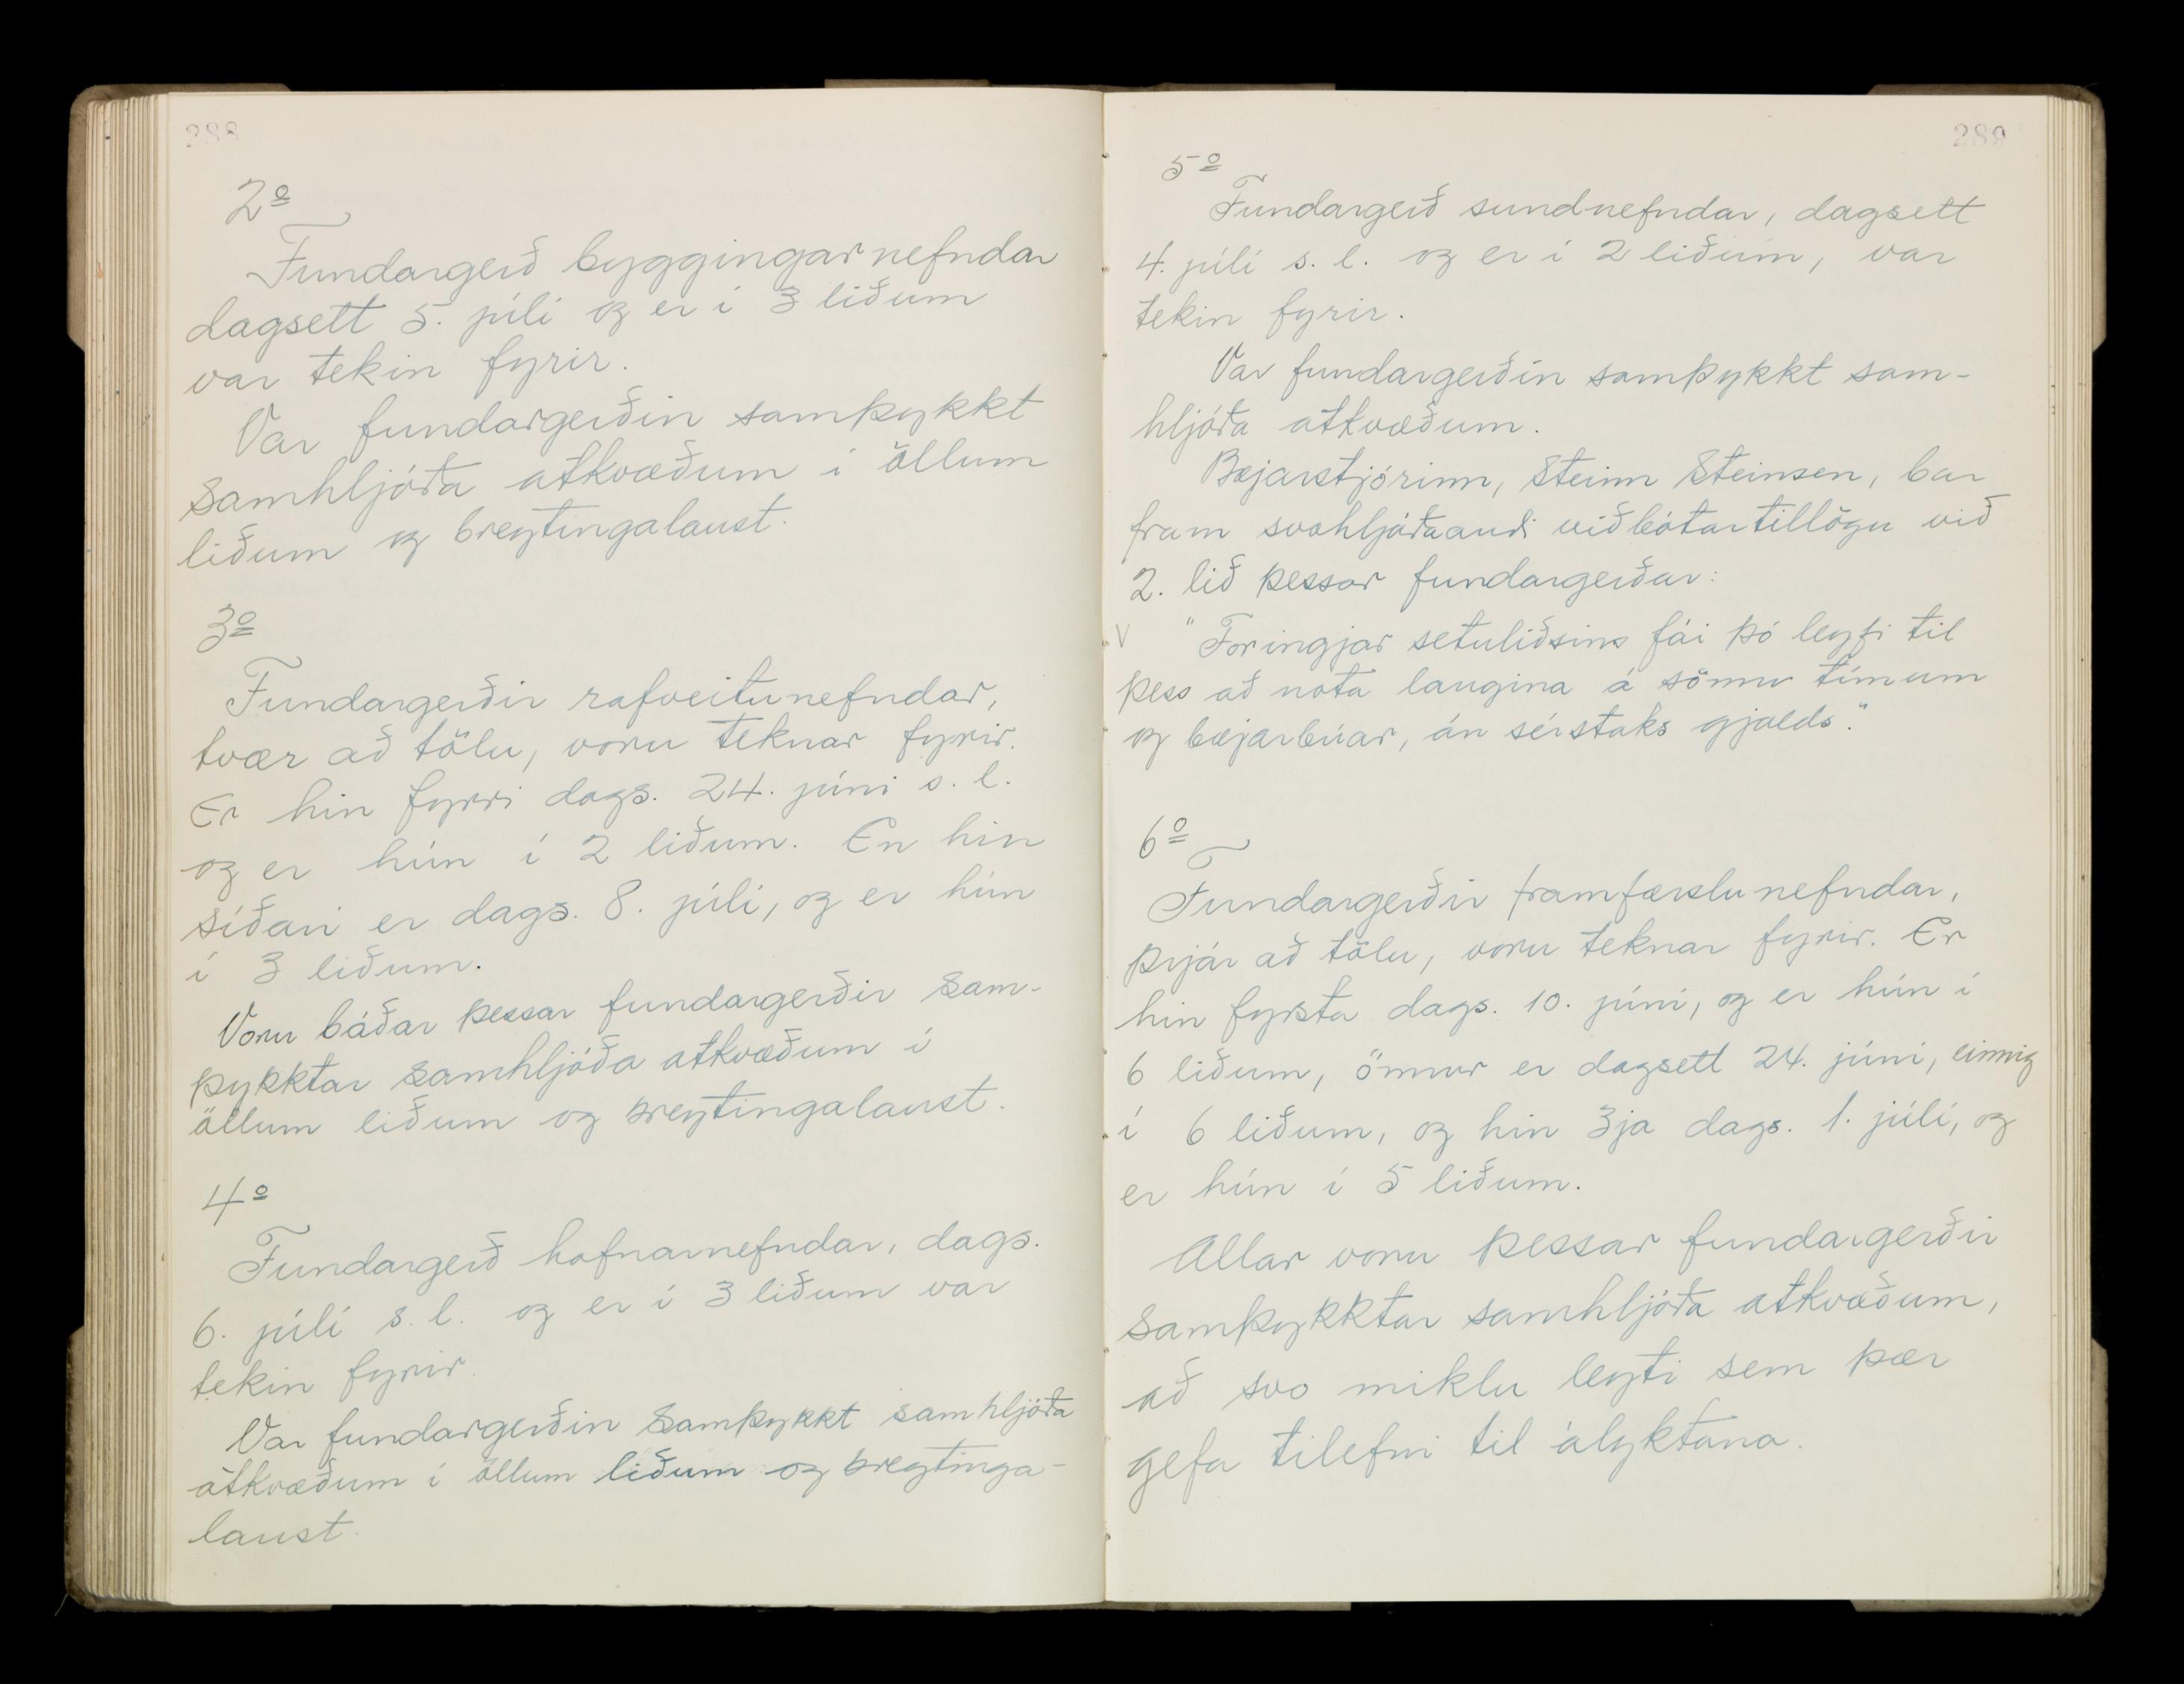 288
2º
Fundargerð byggingarnefndar
dagsett 5. júlí og er í 3 liðum
var tekin fyrir.
Var fundargerðin samþykkt
samhljóða atkvæðum í öllum
liðum og breytingalaust.
3º
Fundargerðir rafveitunefndar,
tvær að tölu, voru teknar fyrir.
Er hin fyrri dags. 24. júní s.l.
og er hún í 2 liðum. En hin
síðari er dags. 8. júlí, og er hún
í 3 liðum.
Voru báðar þessar fundargerðir sam-
þykktar samhljóða atkvæðum í
öllum liðum og breytingalaust.
4º
Fundargerð hafnarnefndar, dags.
6. júlí s.l. og er í 3 liðum var
tekin fyrir.
Var fundargerðin samþykkt samhljóða
atkvæðum í öllum liðum og breytinga-
laust.
289
5º
Fundargerð sundnefndar, dagsett
4. júlí s.l. og er í 2 liðum, var
tekin fyrir.
Var fundargerðin samþykkt sam-
hljóða atkvæðum.
Bæjarstjórinn, Steinn Steinsen, bar
fram svohljóðandi viðbótartillögu við
2. lið þessar fundargerðar:
V "Foringjar setuliðsins fái þó leyfi til
þess að nota laugina á sömu tímum
og bæjarbúar, án sérstaks gjalds."
6º
Fundargerðir framfærslunefndar,
þrjár að tölu, voru teknar fyrir. Er
hin fyrsta dags. 10. júní, og er hún í
6 liðum, önnur er dagsett 24. júní, einnig
í 6 liðum, og hin 3ja dags. 1. júlí, og
er hún í 5 liðum.
Allar voru þessar fundargerðir
samþykktar samhljóða atkvæðum,
að svo miklu leyti sem þær
gefa tilefni til ályktana.